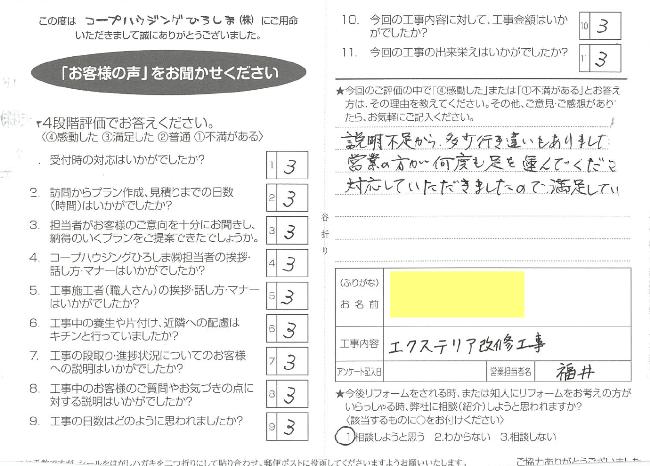 この度は コープハウジングひろしま(株) にご用命
いただきまして誠にありがとうございました。
「お客様の声」をお聞かせください
4段階評価でお答えください。
〈④感動した ③満足した ②普通 ①不満がある〉
. 受付時の対応はいかがでしたか? 1 3
2. 訪問からプラン作成、見積りまでの日数
(時間)はいかがでしたか? 2 3
3. 担当者がお客様のご意向を十分にお聞きし、
納得のいくプランをご提案できたでしょうか。 3 3
4. コープハウジングひろしま㈱担当者の挨拶・
話し方・マナーはいかがでしたか? 4 3
5. 工事施工者(職人さん)の挨拶・話し方・マナー
はいかがでしたか? 5 3
6. 工事中の養生や片付け、近隣への配慮は
キチンと行っていましたか? 6 3
7. 工事の段取り・進捗状況についてのお客様
への説明はいかがでしたか? 7 3
8. 工事中のお客様のご質問やお気づきの点に
対する説明はいかがでしたか? 8 3
9. 工事の日数はどのように思われましたか? 9 3
10. 今回の工事内容に対して、工事金額はいか
がでしたか? 10 3
11. 今回の工事の出来栄えはいかがでしたか? 11 3
★今回のご評価の中で「④感動した」または「①不満がある」とお答え
方は、その理由を教えてください。その他、ご意見・ご感想があり
たら、お気軽にご記入ください。
説明不足から、多少行き違いもありまして
営業の方が何度も足を運んでくださ
対応していただきましたので、満足してい
(ふりがな)
お名前
工事内容 エクステリア改修工事
アンケート記入日 営業担当者名 福井
★今後リフォームをされる時、または知人にリフォームをお考えの方が
いらっしゃる時、弊社に相談(紹介)しようと思われますか?
〈該当するものに○をお付けください〉
1.相談しようと思う 2.わからない 3.相談しない
手数ですが、シールをはがしハガキを二つ折りにして貼り合わせ、郵便ポストに投函してくださいますようお願いいたします。
ご協力ありがとうございました